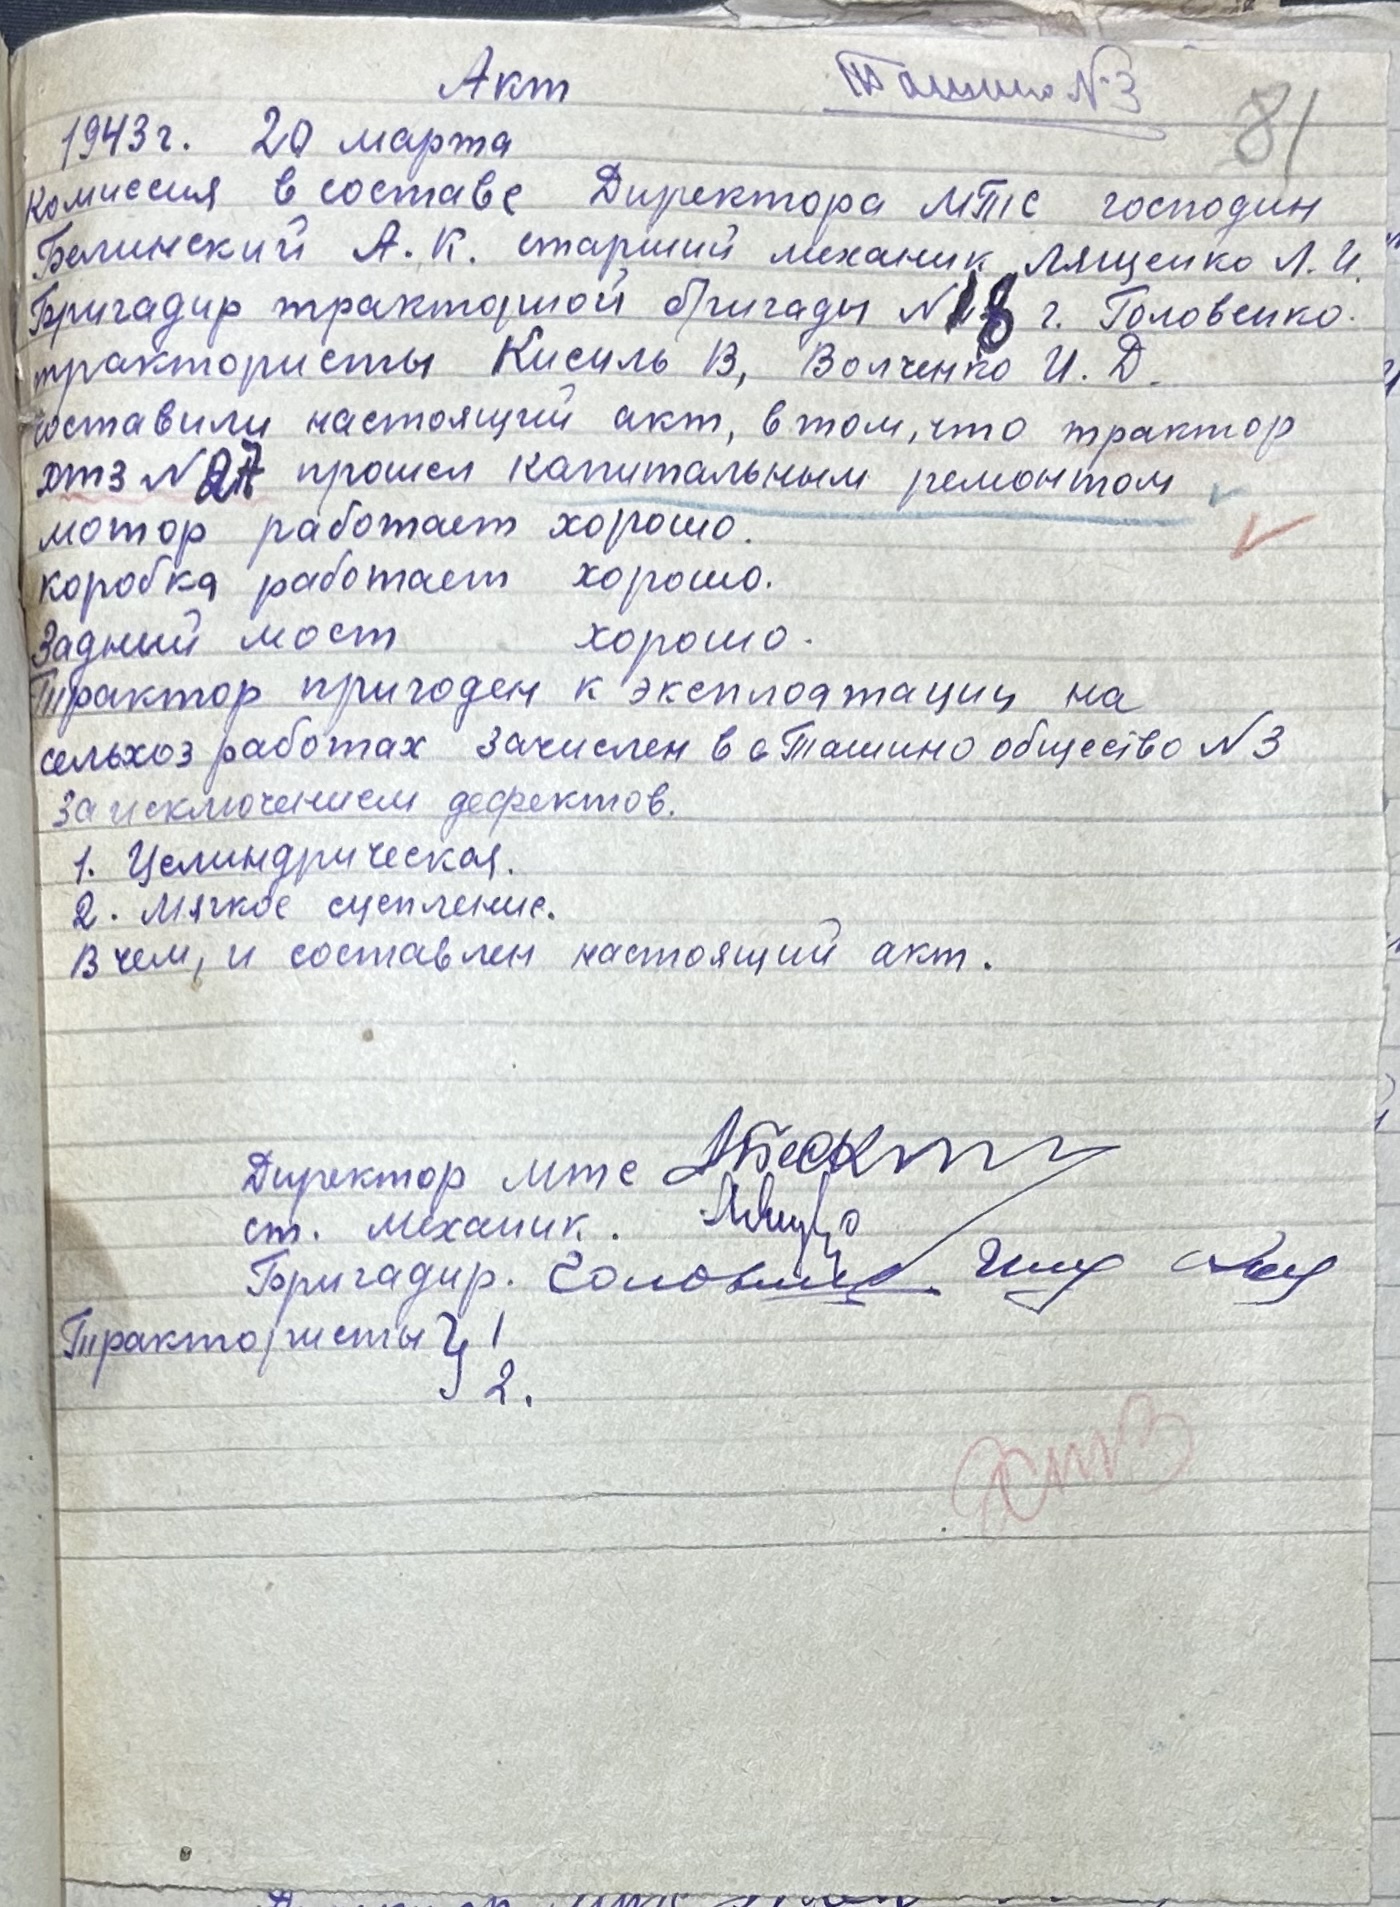 Акт
Ташино №3
81
1943г. 20 марта
Комиссия в составе Директора МТС господин
Белинский А.К. старший механик Лященко Л.И.
Бригадир тракторной бригады №18 г. Головенко.
трактористы Кисиль В, Волченко И.Д.
составили настоящий акт, в том, что трактор
ХТЗ №27 прошел капитальным ремонтом
мотор работает хорошо.
коробка работает хорошо.
Задний мост хорошо.
Трактор пригоден к эксплоятации на
сельхоз работах зачислен в с Ташино общество №3
За исключением дефектов.
1. Целиндрическая.
2. Мягкое сцепление.
В чем, и составлен настоящий акт.
Директор МТС
ст. механик.
Бригадир.
Трактористы } 1
2.